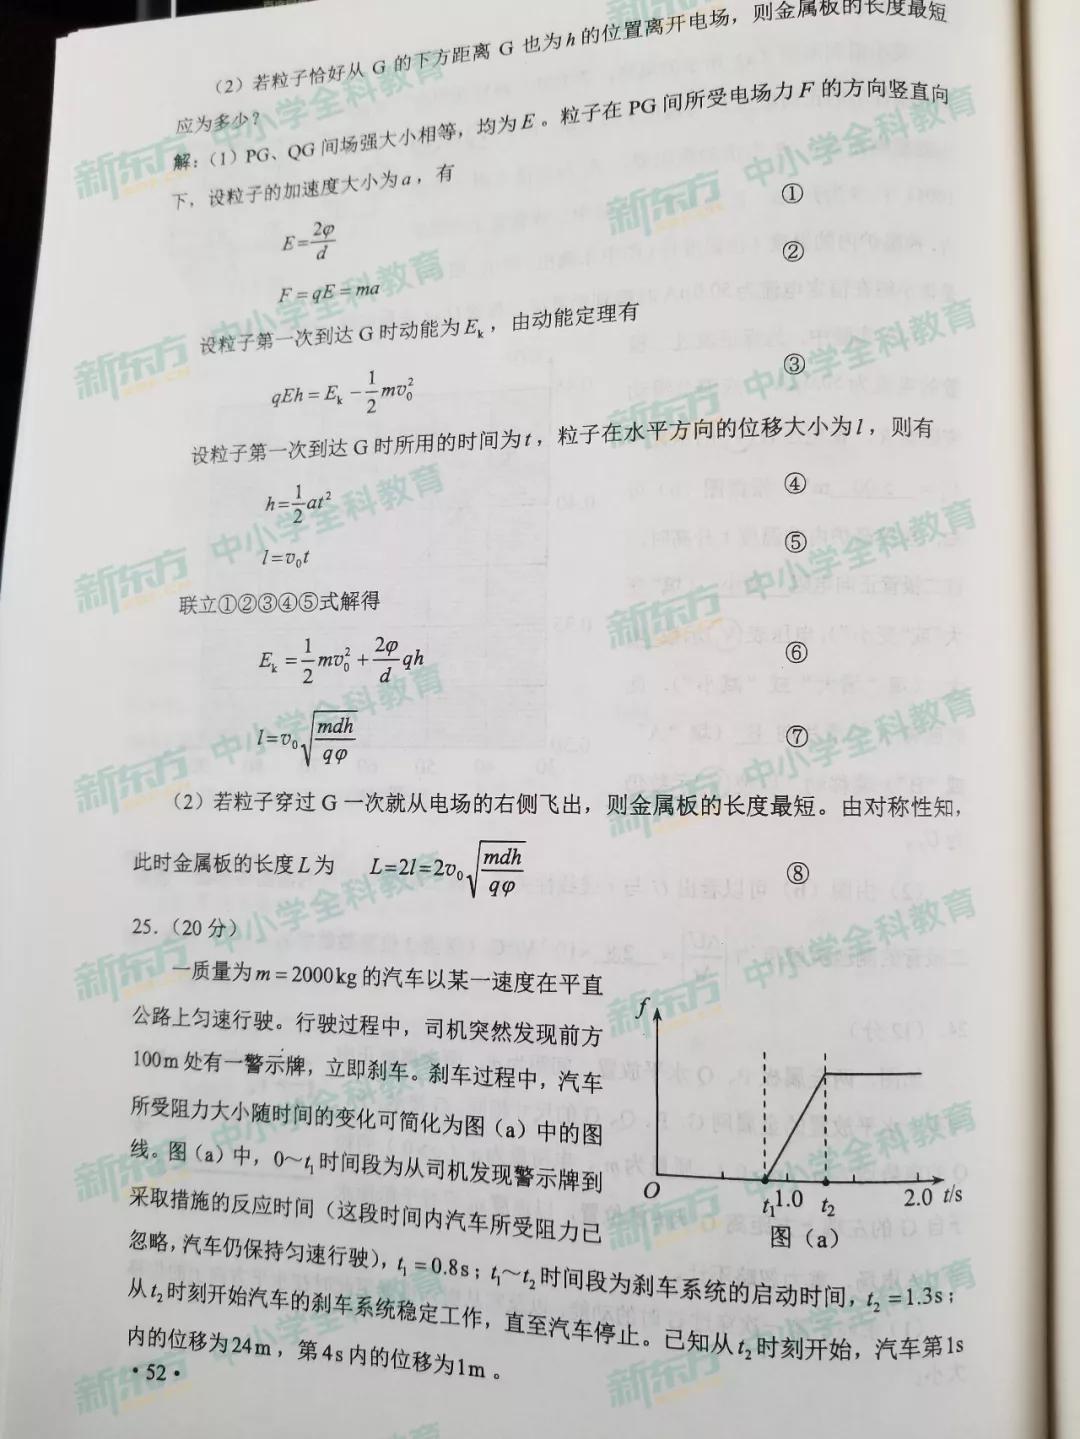 （2）若粒子恰好从 G 的下方距离 G 也为h的位置离开电场，则金属板的长度最短
应为多少？
解：（1）PG、QG 间场强大小相等，均为E。粒子在 PG 间所受电场力F 的方向竖直向
下，设粒子的加速度大小为a，有
E=2φ/d ①
F=qE=ma ②
设粒子第一次到达 G 时动能为Eₖ，由动能定理有
qEh=Eₖ-1/2 mv₀² ③
设粒子第一次到达 G 时所用的时间为t，粒子在水平方向的位移大小为l，则有
h=1/2 at² ④
l=v₀t ⑤
联立①②③④⑤式解得
Eₖ=1/2 mv₀²+2φ/d qh ⑥
l=v₀√(mdh/qφ) ⑦
（2）若粒子穿过 G 一次就从电场的右侧飞出，则金属板的长度最短。由对称性知，
此时金属板的长度L为 L=2l=2v₀√(mdh/qφ) ⑧
25.（20 分）
一质量为m=2000kg的汽车以某一速度在平直
公路上匀速行驶。行驶过程中，司机突然发现前方
100m处有一警示牌，立即刹车。刹车过程中，汽车
所受阻力大小随时间的变化可简化为图（a）中的图
线。图（a）中，0～t₁时间段为从司机发现警示牌到
采取措施的反应时间（这段时间内汽车所受阻力已
忽略，汽车仍保持匀速行驶），t₁=0.8s；t₁～t₂时间段为刹车系统的启动时间，t₂=1.3s；
从t₂时刻开始汽车的刹车系统稳定工作，直至汽车停止。已知从t₂时刻开始，汽车第1s
内的位移为24m，第4s内的位移为1m。
f
O t₁ 1.0 t₂ 2.0 t/s
图（a）
·52·
新东方 中小学全科教育